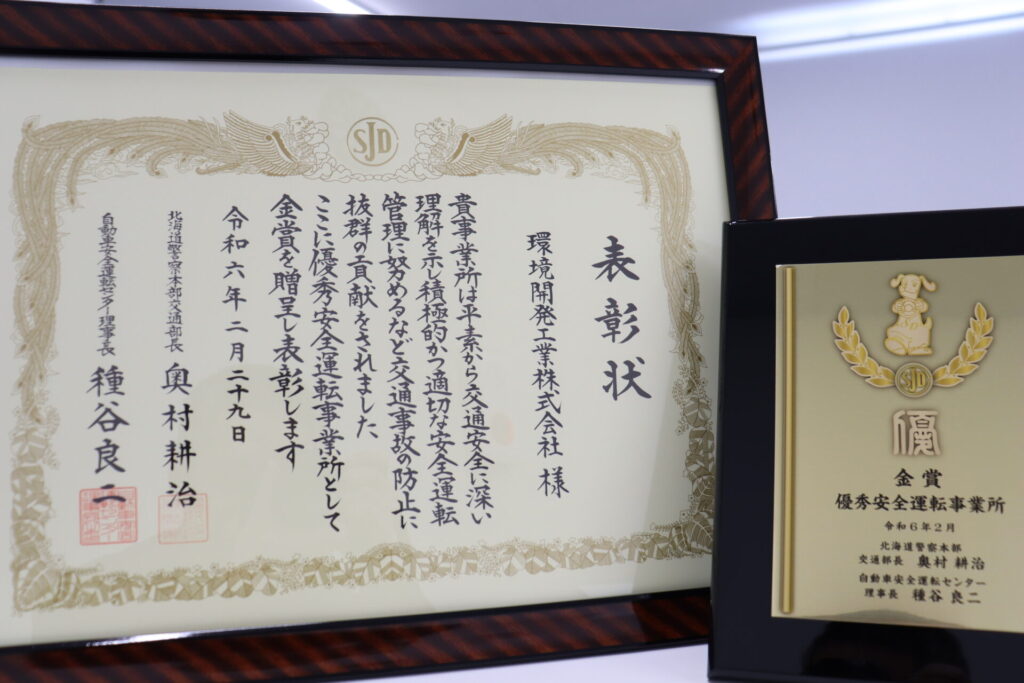 SJD
表彰状
環境開発工業株式会社 様
貴事業所は平素から交通安全に深い
理解を示し積極的かつ適切な安全運転
管理に努めるなど交通事故の防止に
抜群の貢献をされました
ここに優秀安全運転事業所として
金賞を贈呈し表彰します
令和六年二月二十九日
北海道警察本部交通部長 奥村耕治
自動車安全運転センター理事長 種谷良二
SJD
優
金賞
優秀安全運転事業所
令和6年2月
北海道警察本部
交通部長 奥村 耕治
自動車安全運転センター
理事長 種谷 良二